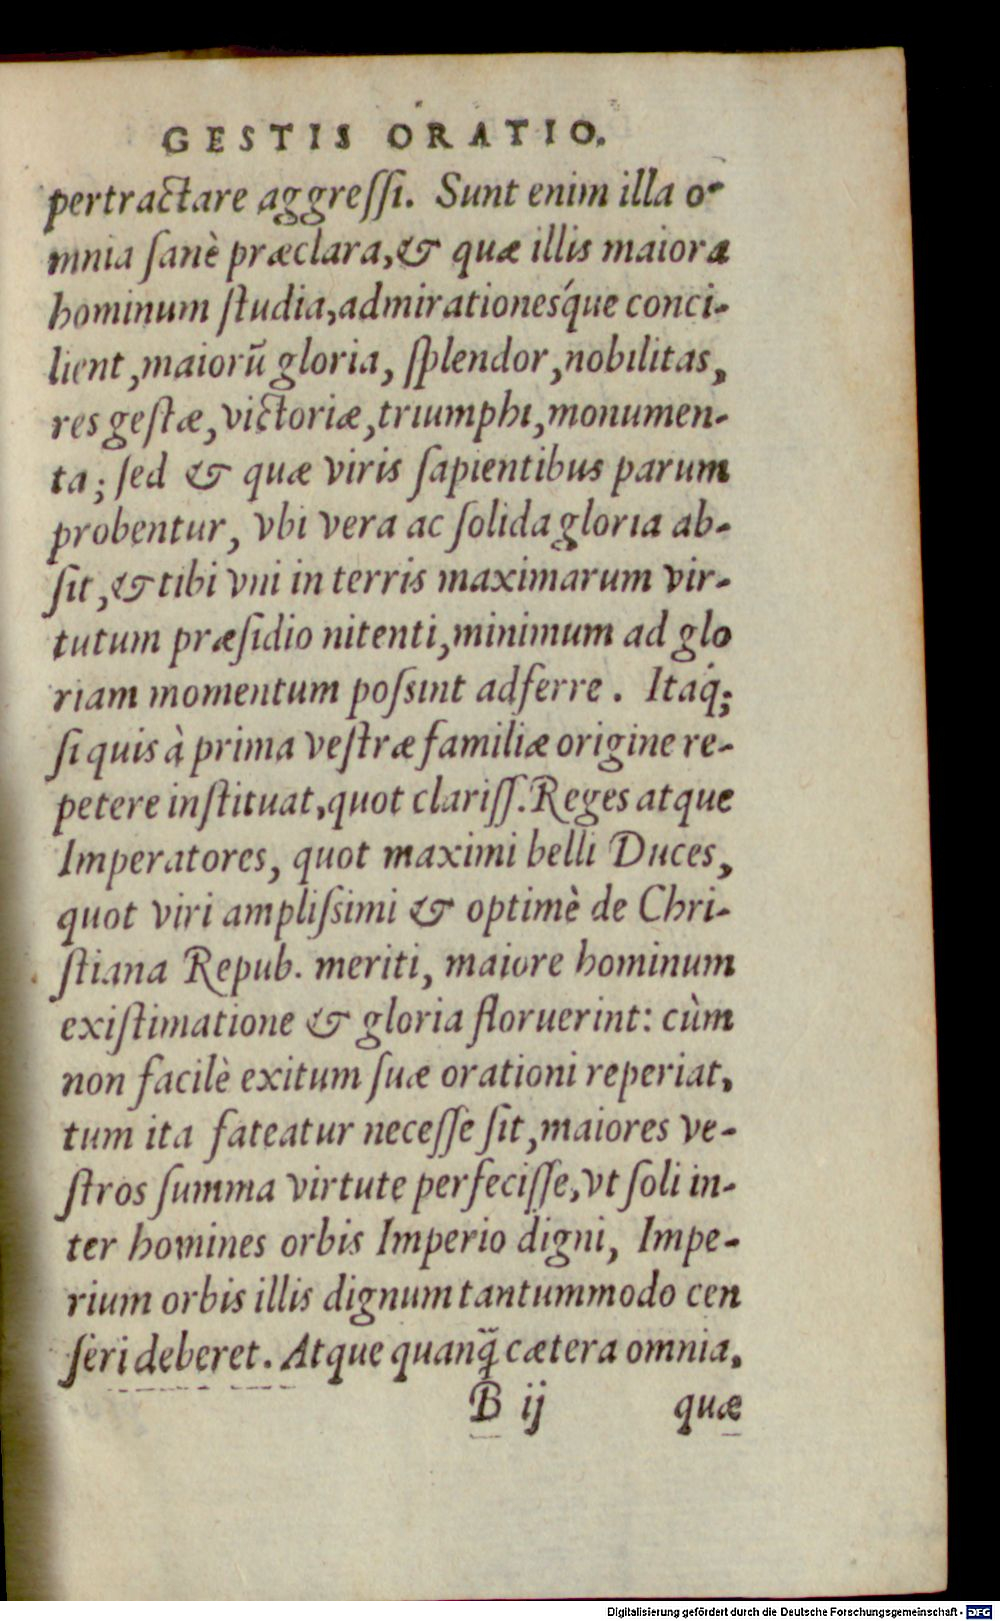 GESTIS ORATIO.
pertractare aggreſſi. Sunt enim illa o-
mnia ſanè præclara, & quæ illis maiora
hominum ſtudia, admirationesq́ue conci-
lient, maiorũ gloria, ſplendor, nobilitas,
res geſtæ, victoriæ, triumphi, monumen-
ta; ſed & quæ viris ſapientibus parum
probentur, vbi vera ac ſolida gloria ab-
ſit, & tibi vni in terris maximarum vir-
tutum præſidio nitenti, minimum ad glo
riam momentum poſsint adferre. Itaq́;
ſi quis à prima veſtræ familiæ origine re-
petere inſtituat, quot clariſſ. Reges atque
Imperatores, quot maximi belli Duces,
quot viri ampliſsimi & optimè de Chri-
ſtiana Repub. meriti, maiore hominum
exiſtimatione & gloria floruerint: cùm
non facilè exitum ſuæ orationi reperiat,
tum ita fateatur neceſſe ſit, maiores ve-
ſtros ſumma virtute perfeciſſe, vt ſoli in-
ter homines orbis Imperio digni, Impe-
rium orbis illis dignum tantummodo cen
ſeri deberet. Atque quanq̃ cætera omnia,
B ij quæ
Digitalisierung gefördert durch die Deutsche Forschungsgemeinschaft - DFG